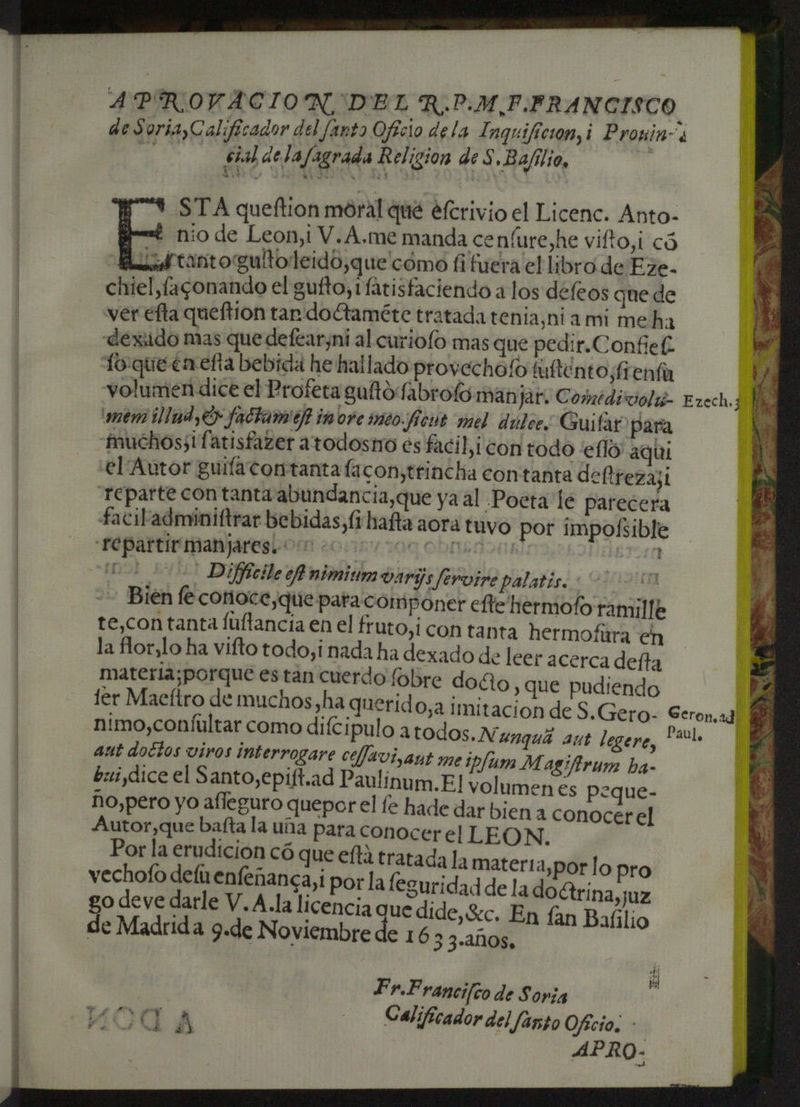 APROVACION DEL R.P.M.F.FRANCISCO
de Soria,Calificador del ſanto Oficio de la Inquiſicion, i Prouin-
cial de la ſagrada Religion de S.Baſilio.
ESTA queſtion moral que eſcrivio el Licenc. Anto-
nio de Leon,i V.A.me manda cenſure,he viſto,i cõ
tanto guſto leido,que como ſi fuera el libro de Eze-
chiel,ſaçonando el guſto,i ſatisfaciendo a los deſeos que de
ver eſta queſtion tan doctamẽte tratada tenia,ni a mi me ha
dexado mas que deſear,ni al curioſo mas que pedir.Confieſ-
ſo que en eſta bebida he hallado provechoſo ſuſtento,ſi en ſu
volumen dice el Profeta guſtò ſabroſo manjar. Comedi volu- Ezech.3
mem illud,& factum eſt in ore meo.ſicut mel dulce. Guiſar para
muchos,i ſatisfazer a todos no es facil,i con todo eſſo aqui
el Autor guiſa con tanta ſaçon,trincha con tanta deſtreza,i
reparte con tanta abundancia,que ya al Poeta le parecera
facil adminiſtrar bebidas,ſi haſta aora tuvo por impoſsible
repartir manjares.
Difficile eſt nimium varijs ſervire palatis.
Bien ſe conoce,que para componer eſte hermoſo ramille
te,con tanta ſuſtancia en el fruto,i con tanta hermoſura en
la flor,lo ha viſto todo,i nada ha dexado de leer acerca deſta
materia;porque es tan cuerdo ſobre docto, que pudiendo
ſer Maeſtro de muchos,ha querido,a imitacion de S.Gero- Geron.ad
nimo,conſultar como diſcipulo a todos.Nunquã aut legere, Paul.
aut doctos viros interrogare ceſſavi,aut me ipſum Magiſtrum ha-
bui,dice el Santo,epiſt.ad Paulinum.El volumen es peque-
ño,pero yo aſſeguro quepor el ſe hade dar bien a conocer el
Autor,que baſta la uña para conocer el LEON.
Por la erudicion cõ que eſtà tratada la materia,por lo pro
vechoſo deſu enſeñança,i por la ſeguridad de la doctrina,juz
go deve darle V.A.la licencia que dide,&c. En ſan Baſilio
de Madrid a 9.de Noviembre de 1633.años.
Fr.Franciſco de Soria
Calificador del ſanto Oficio.
APRO-